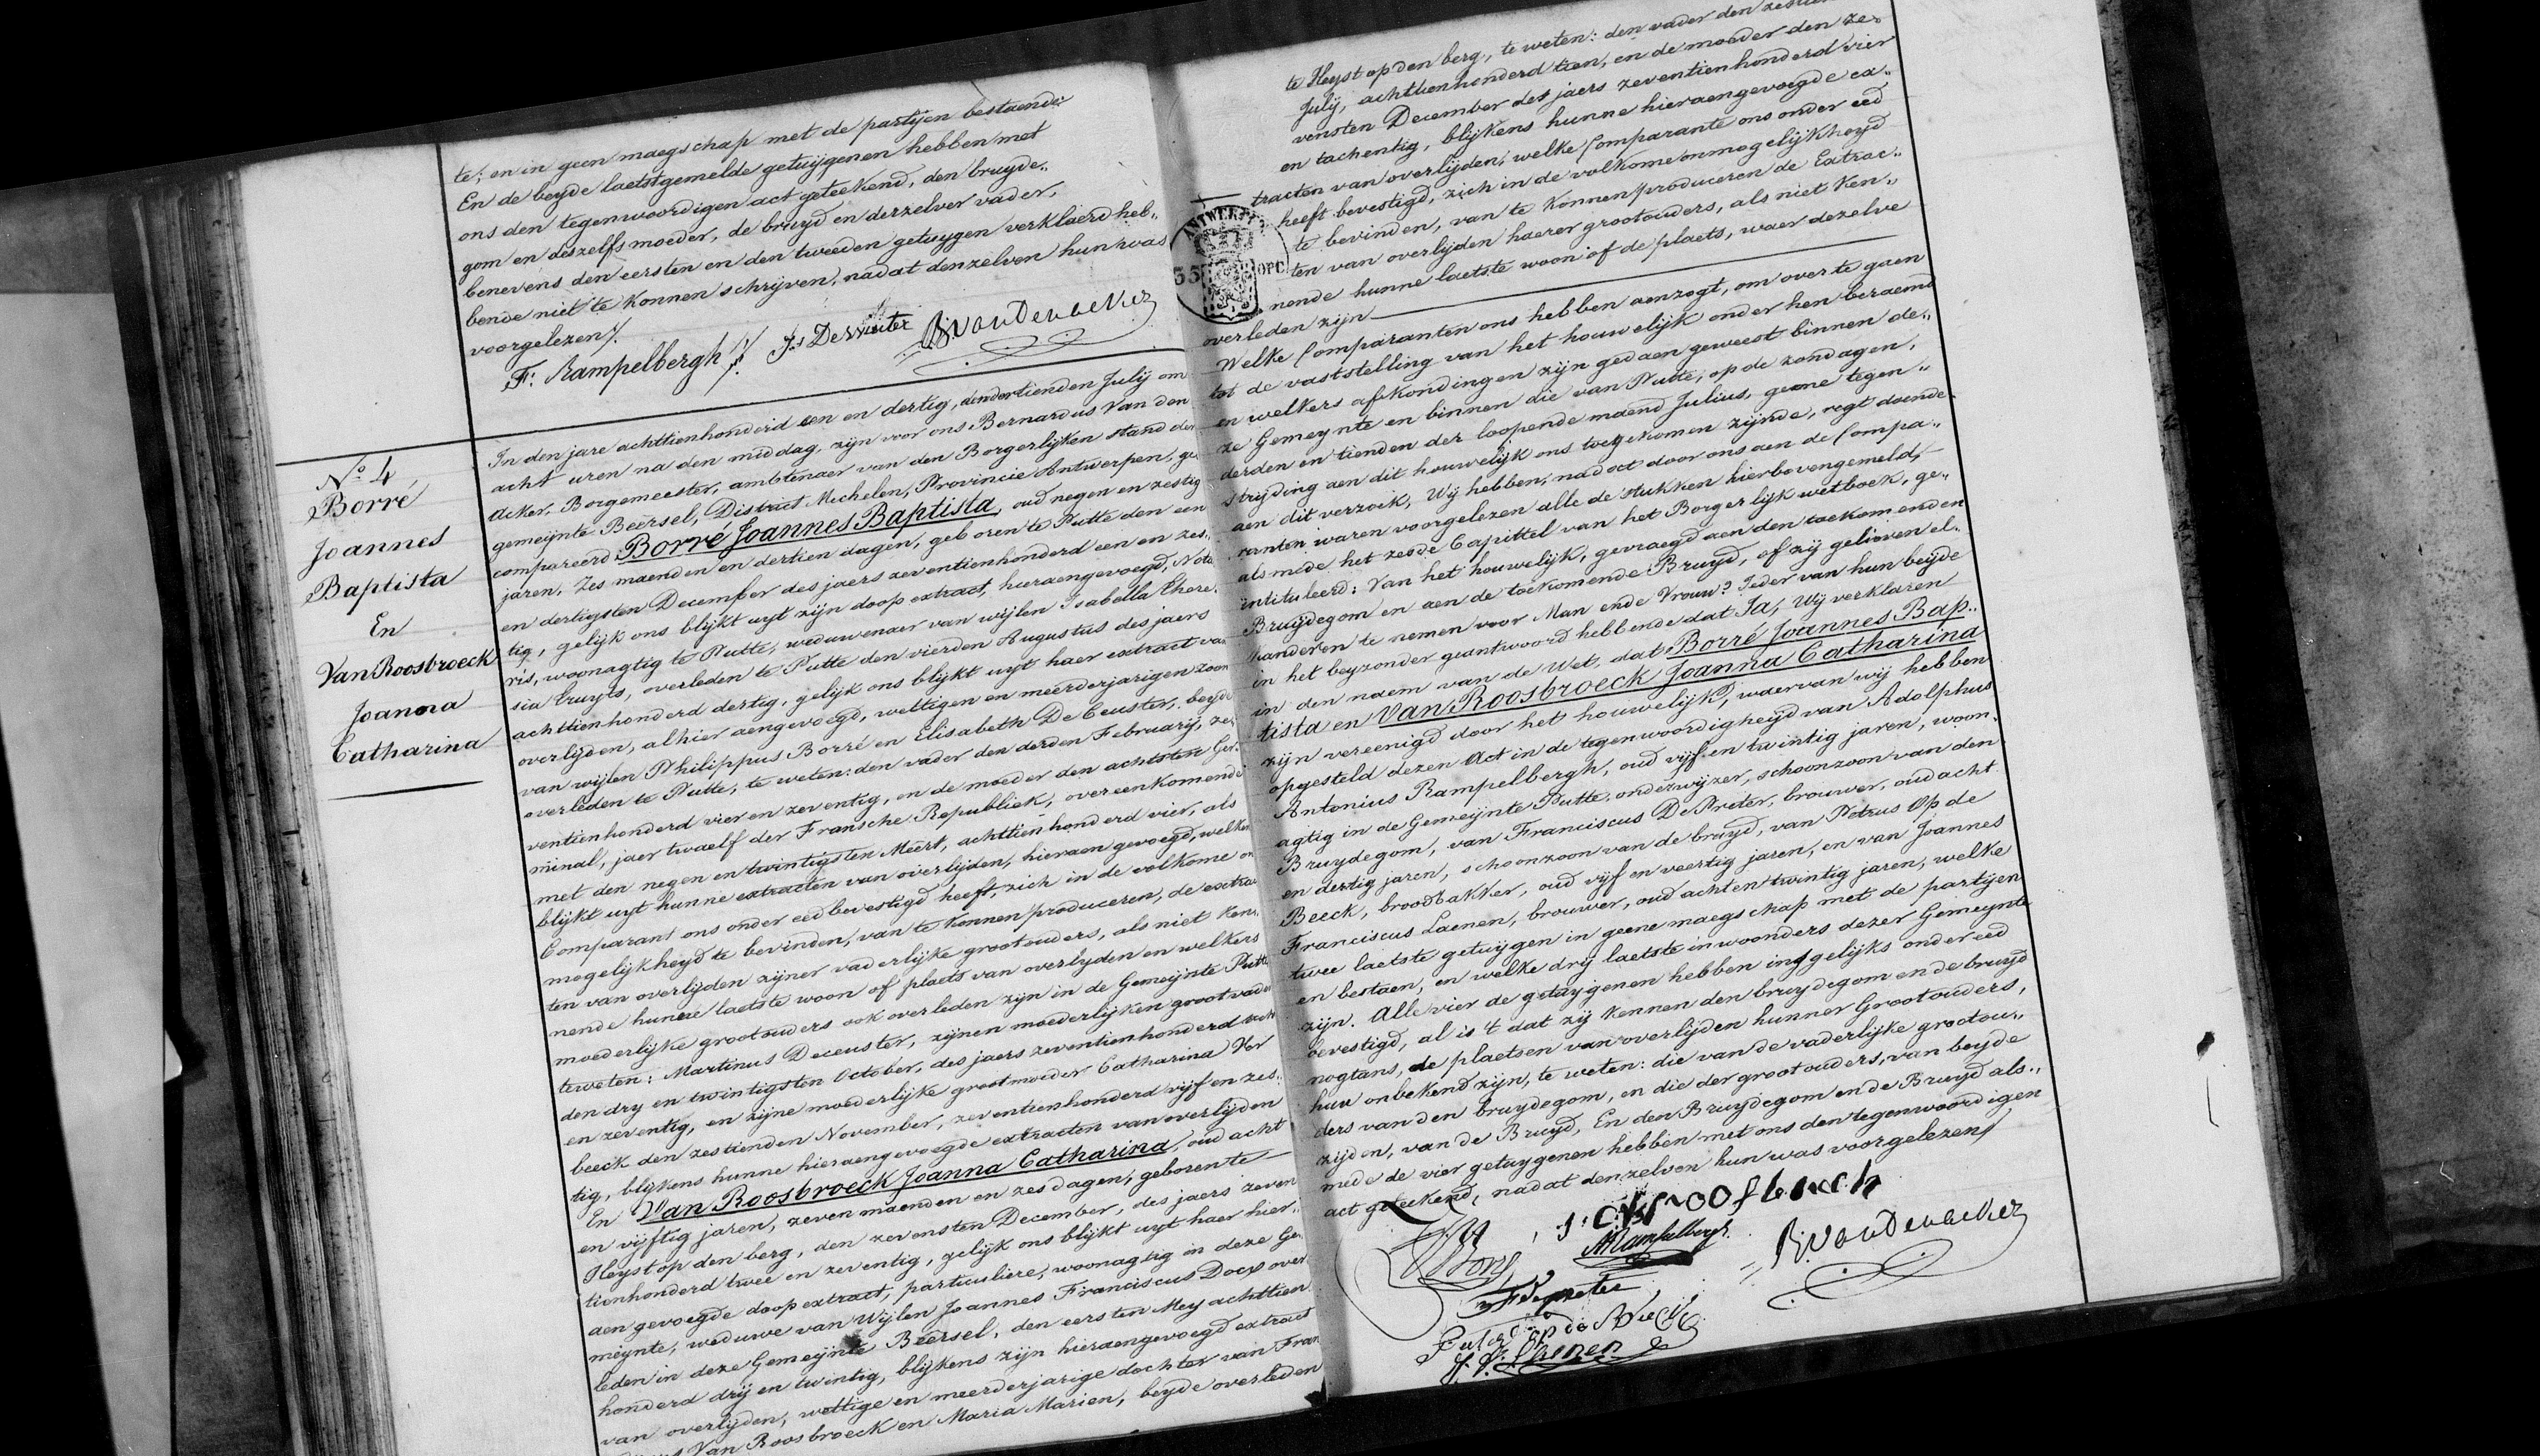 te; en in geen maegschap met de partijen bestaende.
En de beyde laetstgemelde getuijgenen hebben met
ons den tegenwoordigen act geteekend, den bruyde„
gom en deszelfs moeder, de bruyd en derzelver vader,
benevens den eersten en den tweeden getuygen verklaerd heb„
bende niet te konnen schrijven, nadat denzelven hun was
voorgelezen /.
F: Rampelbergh /. Js Deswiter B. Van Den acker
N.o 4
Borré
Joannes
Baptista
En
Van Roosbroeck
Joanna
Catharina
In den jare achttienhonderd een en dertig, den dertienden Julij om
acht uren na den middag, zijn voor ons Bernardus Van den
Acker, Borgemeester, ambtenaer van den Borgerlijken stand der
gemeijnte Beërsel, District Mechelen, Provincie Antwerpen, ge
compareerd Borré Joannes Baptista, oud negen en zestig
jaren, Zes maenden en dertien dagen, geboren te Putte den een
en dertigsten December des jaers zeventienhonderd een en zes„
tig, gelijk ons blijkt uyt zijn doop extract, hieraengevoegd, Nota
ris, woonagtig te Putte, weduwenaer van wijlen Isabella There„
sia Cruyts, overleden te Putte den vierden Augustus des jaers
achttienhonderd dertig, gelijk ons blijkt uyt haer extract van
overlijden, alhier aengevoegd, wettigen en meerderjarigen zoon
van wijlen Philippus Borré en Elisabeth De Ceuster, beyde
overleden te Putte, te weten: den vader den derden February, ze
ventienhonderd vier en zeventig, en de moeder den achtsten Ger„
minal, jaer twaelf der Fransche Republiek, overeenkomende
met den negen en twintigsten Meert, achttienhonderd vier, als
blijkt uyt hunne extracten van overlijden, hieraen gevoegd, welken
Comparant ons onder eed bevestigd heeft, zich in de volkome on
mogelijkheyd te bevinden, van te konnen produceren, de extrac
ten van overlijden zijner vaderlijke grootouders, als niet ken„
nende hunne laetste woon of plaets van overlyden en welkers
moederlijke grootouders ook overleden zijn in de Gemeijnte Putte
teweten: Martinus Deceuster, zijnen moederlijken grootvader
den dry en twintigsten October, des jaers zeventienhonderd acht
en zeventig, en zijne moederlijke grootmoeder Catharina Ver
beeck den zestienden November, zeventienhonderd vijf en zes„
tig, blijkens hunne hieraengevoegde extracten van overlijden
En Van Roosbroeck Joanna Catharina, oud acht
en vijftig jaren, zeven maenden en zes dagen, geboren te
Heyst op den berg, den zevensten December, des jaers zeven
tienhonderd twee en zeventig, gelijk ons blijkt uyt haer hier„
aen gevoegde doop extract, particuliere, woonagtig in deze Ge
meijnte, weduwe van Wijlen Joannes Franciscus Docx over
leden in deze Gemeijnte Beërsel, den eersten Mey achttien
honderd drij en twintig, blijkens zijn hieraengevoegd extract
van overlijden, wettige en meerderjarige dochter van Fran
Van Roosbroeck en Maria Marien, beyde overleden
te Heyst op den berg, te weten: den vader den
July, achttienhonderd tien, en de moeder den ze„
vensten December des jaers zeventienhonderd vier
en tachentig, blijkens hunne hieraengevoegde ex„
tracten van overlijden; welke Comparante ons onder eed
heeft bevestigd, zich in de volkome onmogelijkheyd
te bevinden, van te konnen produceren de Extrac„
ten van overlijden haerer grootouders, als niet Ken„
nende hunne laetste woon of de plaets, waer dezelve
overleden zijn
Welke Comparanten ons hebben aenzogt, om over te gaen
tot de vaststelling van het houwelijk onder hen beraemd
en welkers afkondingen zijn gedaen geweest binnen de„
ze Gemeynte en binnen die van Putte, op de zondagen,
derden en tienden der loopende maend Julius, geene tegen„
strijding aen dit houwelijk ons toegekomen zijnde, regt doende
aen dit verzoik, Wij hebben, nadat door ons aen de Compa„
ranten waren voorgelezen alle de stukken hierbovengemeld,
als mede het zesde Capittel van het Borgerlijk wetboek, ge„
intituleerd: Van het houwelijk, gevraegd aen den toekomenden
Bruijdegom en aen de toekomende Bruyd, of zij gelieven el„
kanderen te nemen voor Man ende Vrouw? Ieder van hun beijde
in het beyzonder geantwoord hebbende dat Ja, Wij verklaren
in den naem van de Wet, dat Borré Joannes Bap„
tista en Van Roosbroeck Joanna Catharina
zijn vereenigd door het houwelijk, waervan wij hebben
opgesteld dezen Act in de tegenwoordigheijd van Adolphus
Antonius Rampelbergh, oud vijf en twintig jaren, woon„
agtig in de Gemeijnte Putte, onderwijzer, schoonzoon van den
Bruydegom, van Franciscus De Preter, brouwer, oud acht
en dertig jaren, schoonzoon van de bruyd, van Petrus Op de
Beeck, broodbakker, oud vijf en veertig jaren, en van Joannes
Franciscus Laenen, brouwer, oud achtentwintig jaren, welke
twee laetste getuijgen in geene maegschap met de partijen
en bestaen, en welke drij laetste inwoonders dezer Gemeynte
zijn. Alle vier de getuijgenen hebben insgelijks onder eed
bevestigd, al is 't dat zij kennen den bruydegom en de bruyd
nogtans, de plaetsen van overlijden hunner Grootouders,
hun onbekend zijn, te weten: die van de vaderlijke grootou„
ders van den bruydegom, en die der grootouders, van beyde
zijden, van de Bruyd, En den Bruydegom ende Bruyd als„
mede de vier getuygenen hebben met ons den tegenwoordigen
act geteekend, nadat denzelven hun was voorgelezen /
ARampelbergh
B. Van Den acker
F Depreter
Peter Op de Bieck
J. F. Laenen
ANTWERPEN
35
OPC